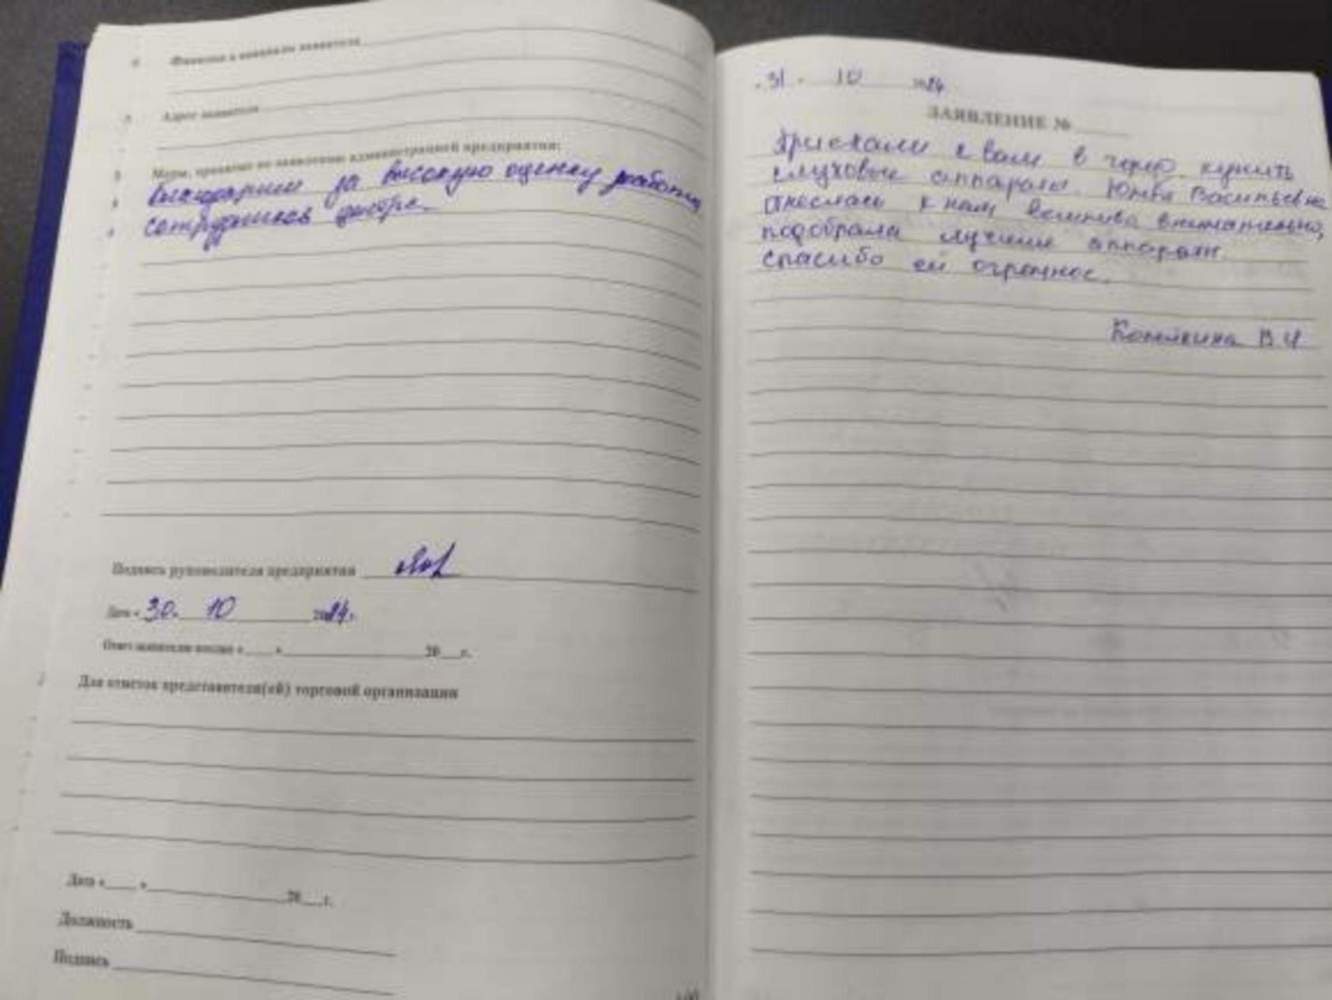 Фамилия и инициалы заявителя
Адрес заявителя
Меры, принятые по заявлению администрацией предприятия:
Благодарим за высокую оценку работы
сотрудников центра.
Подпись руководителя предприятия
Дата « 30. 10 2024г.
Ответ заявителю послан «____»____ 20___г.
Для отметок представителя(ей) торговой организации
Дата «____»____ 20___г.
Должность
Подпись
«31» 10 2024
ЗАЯВЛЕНИЕ №
Приехали к вам в купить
слуховые аппараты. Юлия Васильевна
отнеслась к нам внимательно,
подобрала лучшие аппараты.
спасибо ей огромное.
В.И